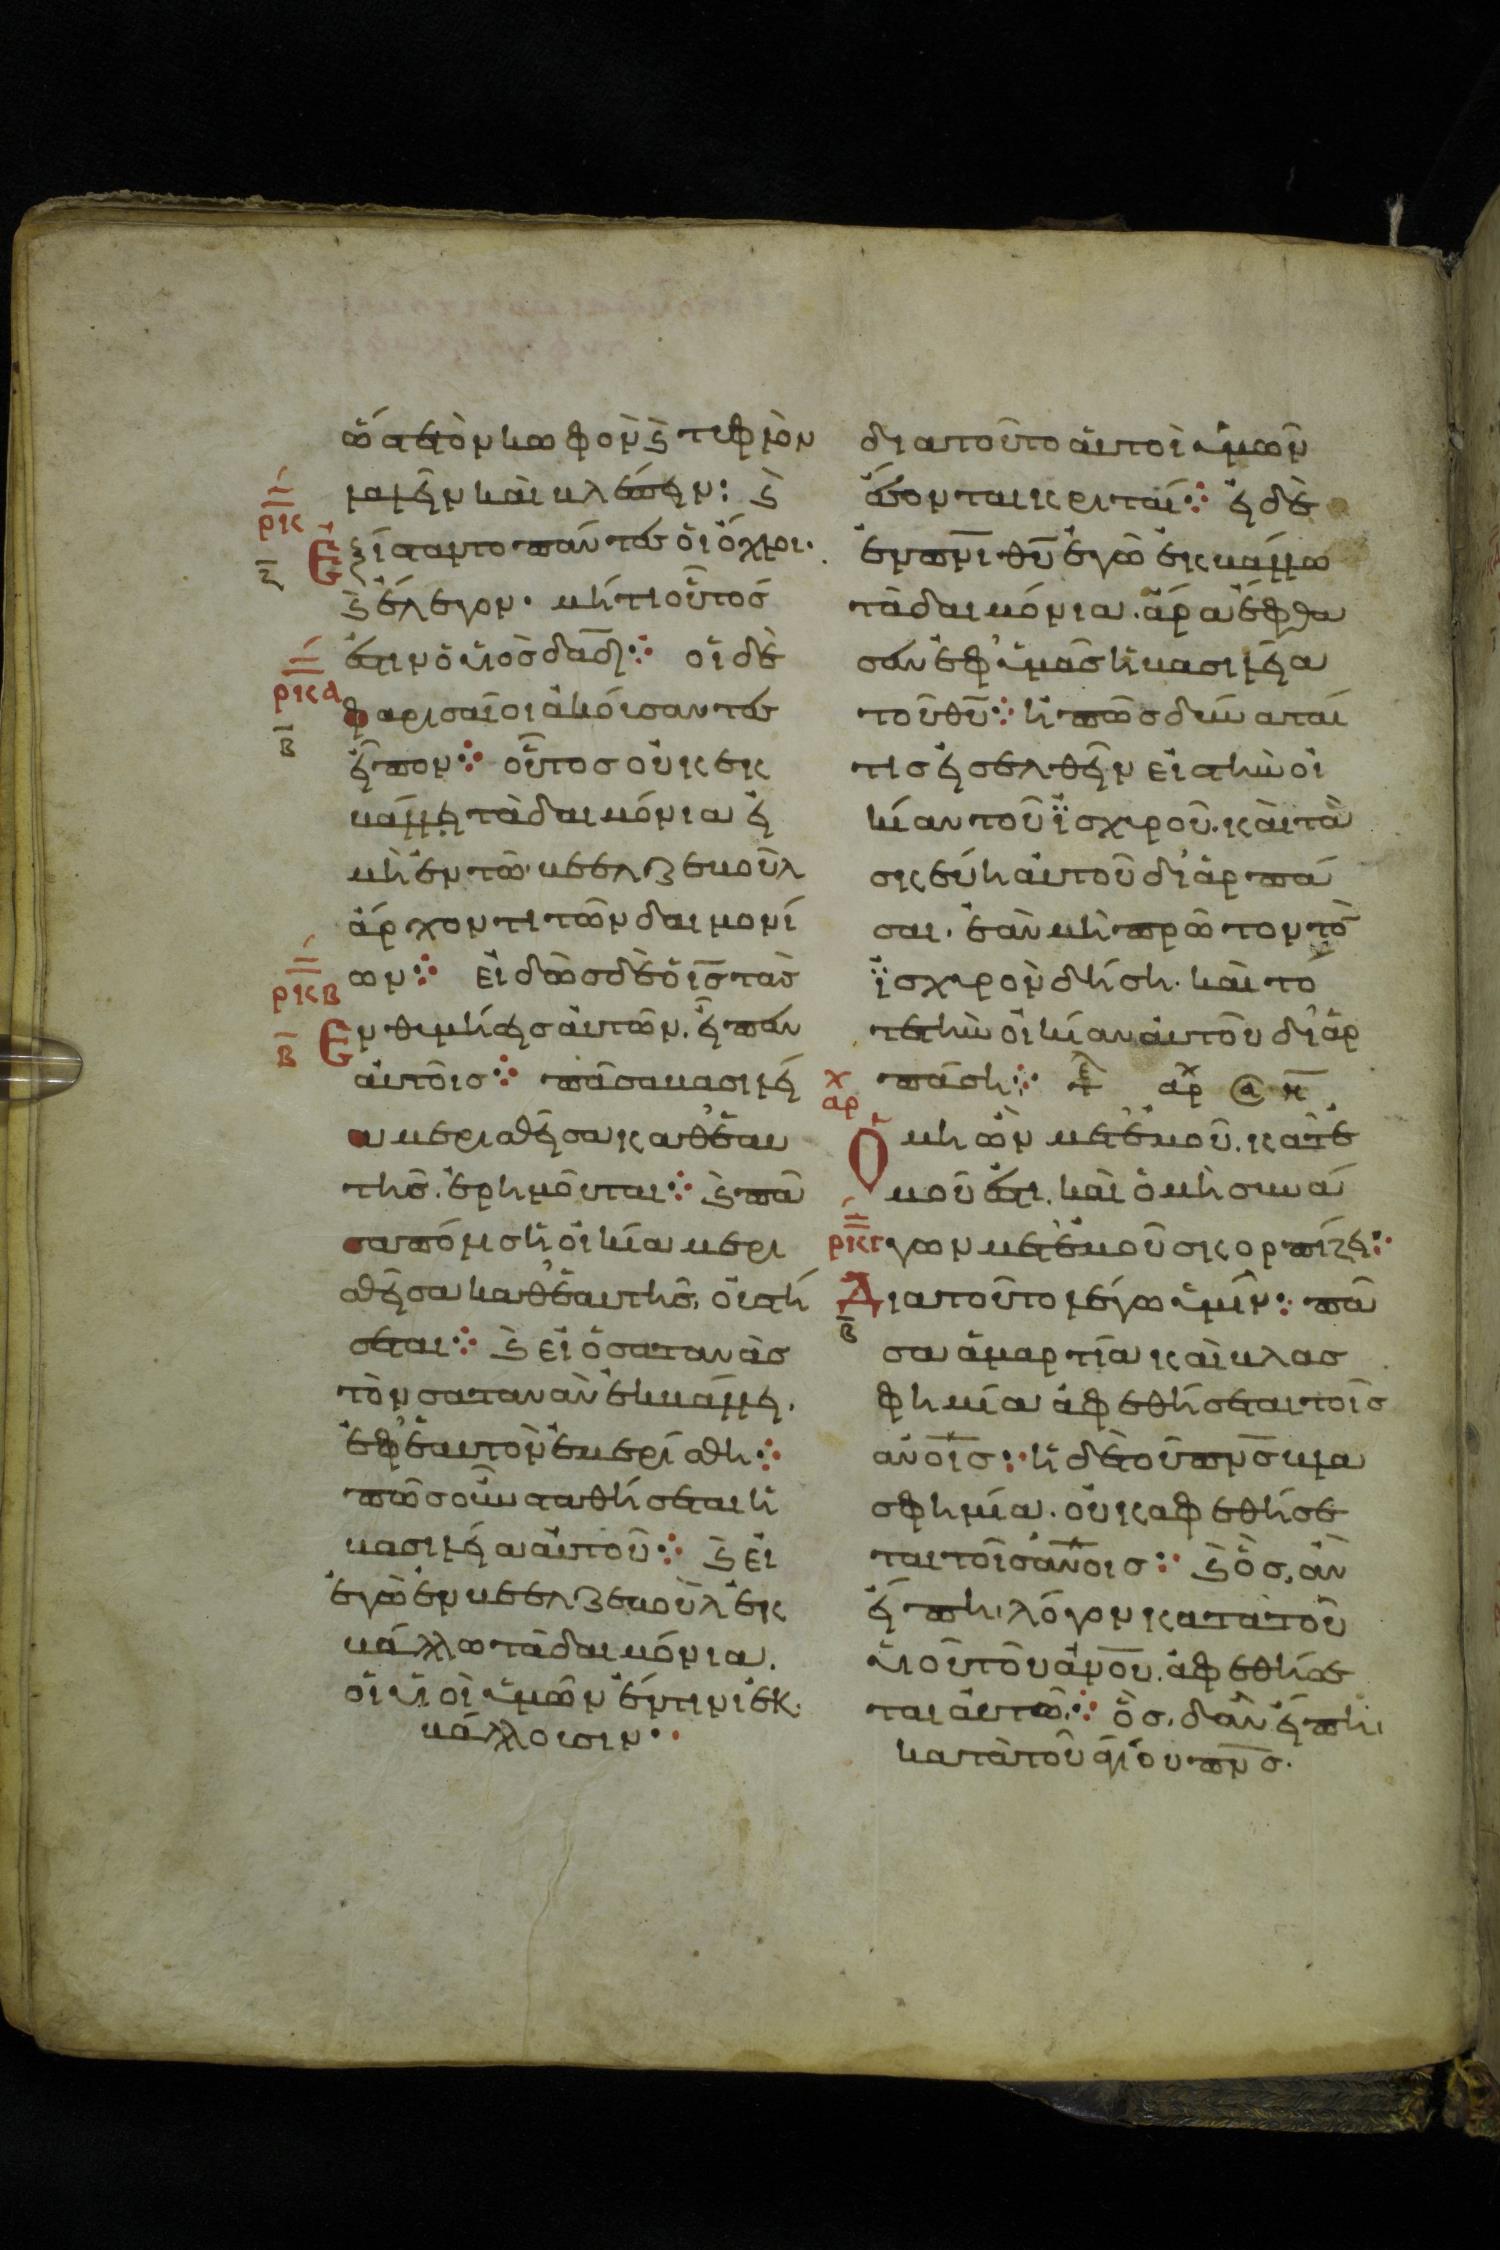 ὥστε τὸν κωφὸν ϗ τυφλὸν
λαλεῖν καὶ βλέπειν: ϗ
ριϛ
ζ
Ἐξίσταντο πάντες οἱ ὄχλοι.
ϗ ἔλεγον. μήτι οὗτος
ἐστιν ὁ υἱὸς δαδ: οἱ δὲ
ρκα
β
φαρισαῖοι ἀκούσαντες
εἶπον: οὗτος οὐκ ἐκ
βάλλει τὰ δαιμόνια εἰ
μὴ ἐν τῶ βεελζεβοὺλ
ἄρχοντι τῶν δαιμονί
ων: εἰδὼς δὲ ὁ ις τὰς
ρκβ
β
Ενθυμήσεις αὐτῶν. εἶπεν
αὐτοῖς: πᾶσα βασιλεί
α μερισθεῖσα καθ' ἑαυ
τῆς. ἐρημοῦται: ϗ πᾶ
σα πόλις ἢ οἰκία μερι
σθεῖσα καθ' ἑαυτῆς, οὐ στή
σεται: ϗ εἰ ὁ σατανὰς
τὸν σατανὰν ἐκβάλλει.
ἐφ' ἑαυτὸν ἐμερίσθη:
πῶς οὖν σταθήσεται ἡ
βασιλεία αὐτοῦ: ϗ εἰ
ἐγὼ ἐν βεελζεβοὺλ ἐκ
βάλλω τὰ δαιμόνια.
οἱ υἱοὶ ὑμῶν ἐν τίνι ἐκ
βάλλουσιν:
διατοῦτο αὐτοὶ ὑμῶν
ἔσονται κριταί: εἰ δὲ
ἐν πνι θυ ἐγὼ ἐκβάλλω
τὰ δαιμόνια. ἄρα ἔφθα
σεν ἐφ' ὑμᾶς ἡ βασιλεία
τοῦ θυ: ἢ πῶς δύναταί
τις εἰσελθεῖν εἰς τὴν οἰ
κίαν τοῦ ἰσχυροῦ. καὶ τὰ
σκεύη αὐτοῦ διαρπά
σαι. ἐὰν μὴ πρῶτον τὸ
ἰσχυρὸν δήση. καὶ το
τε τὴν οἰκίαν αὐτοῦ διαρ
πάση:
αρχ
Ο μὴ ὢν μετ' ἐμοῦ. κατ' ἐ
μοῦ ἐστι. καὶ ὁ μὴ συνά
ρκγ
γων μετ' ἐμοῦ σκορπίζει:
β
Διατοῦτο λέγω ὑμῖν: πᾶ
σα ἁμαρτία καὶ βλασ
φημία ἀφεθήσεται τοῖς
ανοις: ἡ δὲ τοῦ πνς βλα
σφημία. οὐκ ἀφεθήσε
ται τοῖς ανοις: ϗ ὃς, ἂν
εἴπη λόγον κατὰ τοῦ
υἱοῦ τοῦ ανου. ἀφεθήσε
ται αὐτῶ: ὃς, δ' ἂν εἴπη
κατὰ τοῦ ἁγίου πνς.